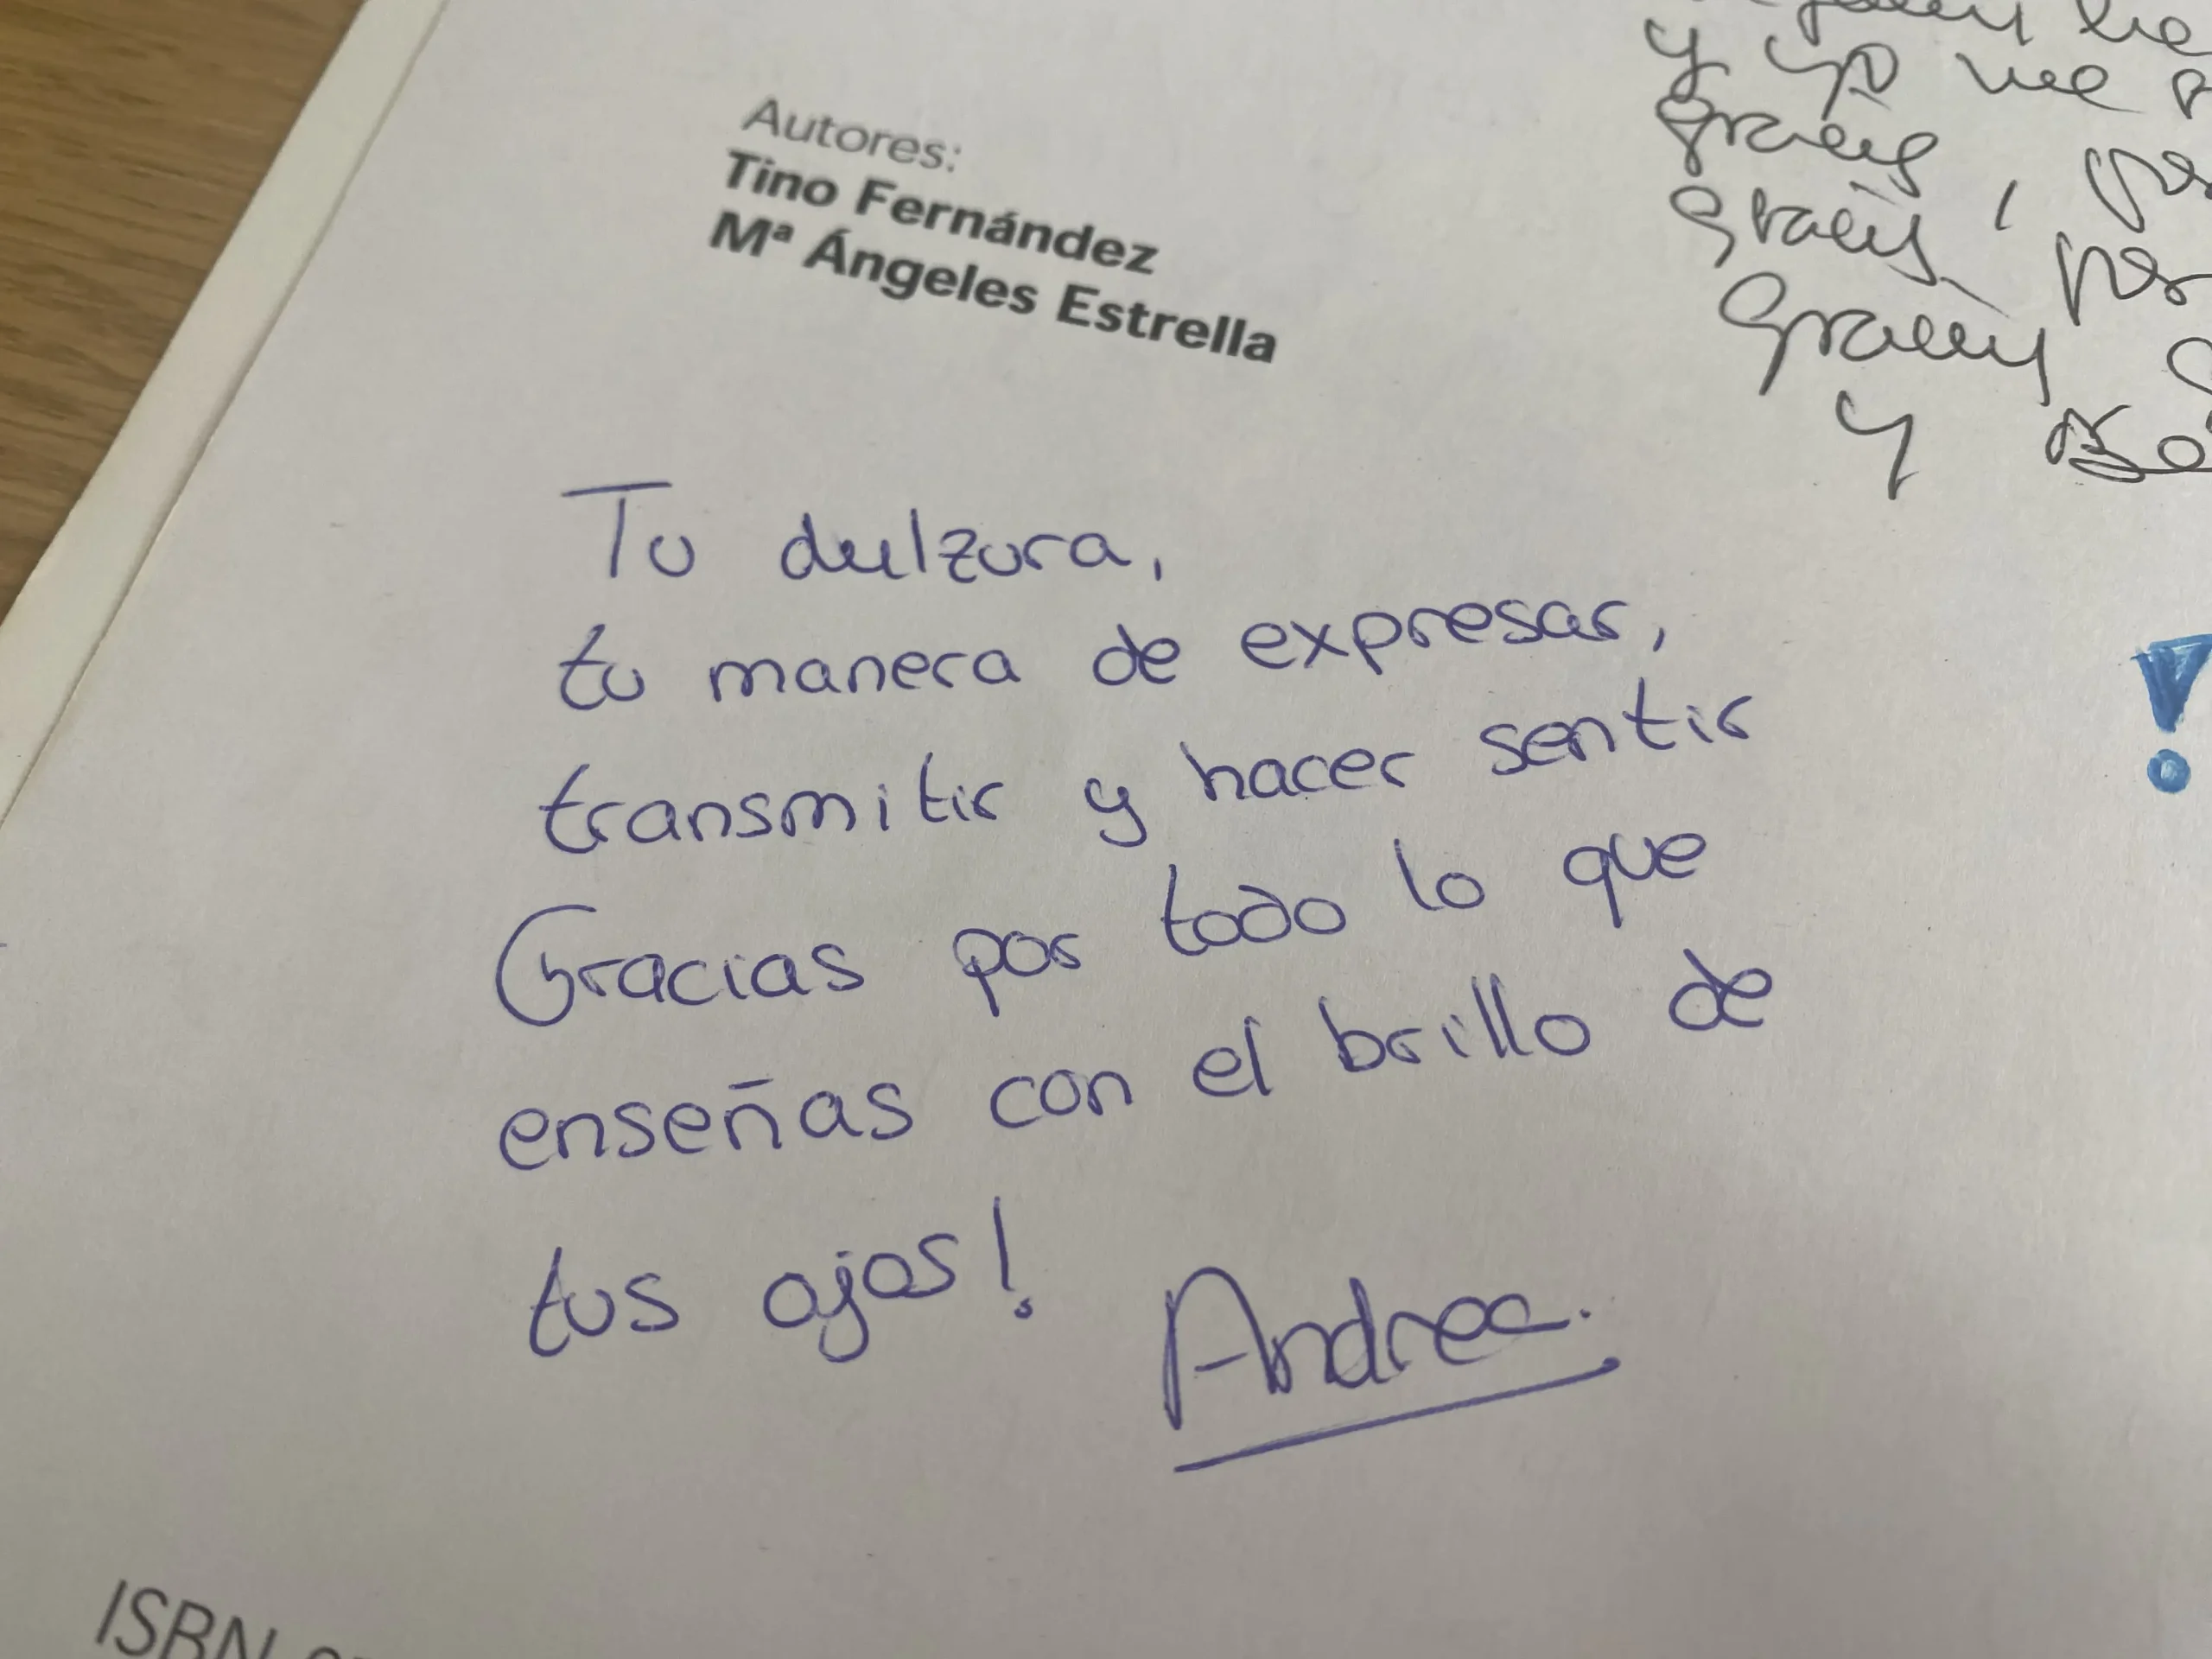 Autores:
Tino Fernández
Mª Ángeles Estrella
y yo me
gracias, por
gracias, por
gracias
y
Tu dulzura,
tu manera de expresar,
transmitir y hacer sentir
Gracias por todo lo que
enseñas con el brillo de
tus ojos!
Andrea.
!
ISBN